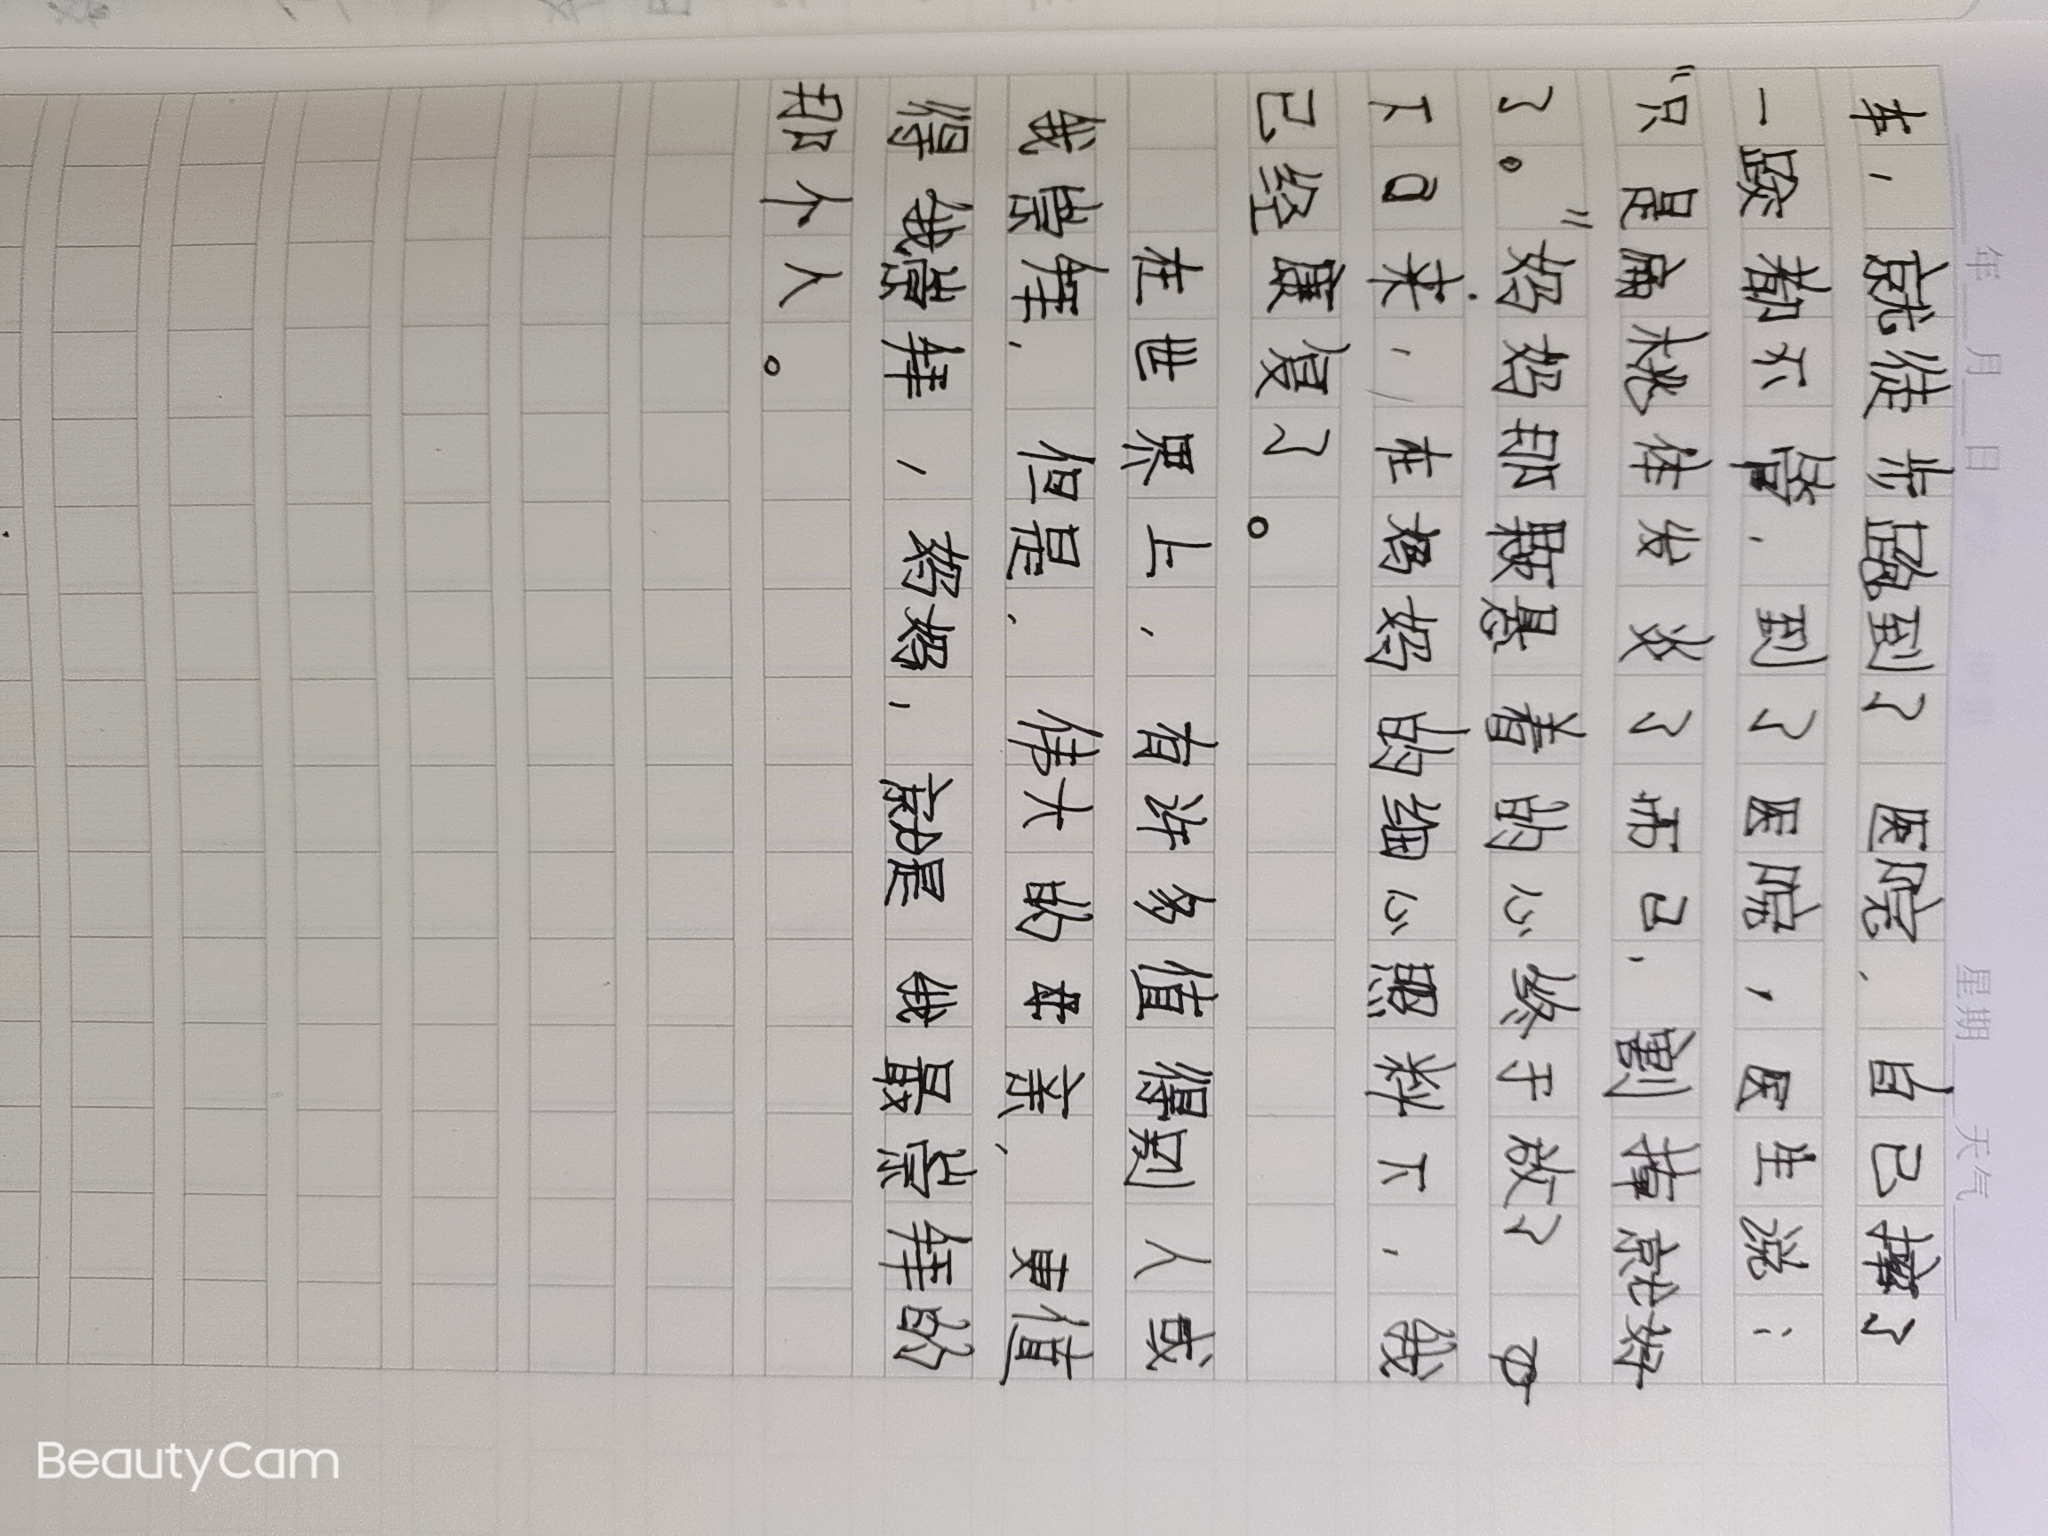 年 月 日 星期 天气
车,就徒步跑到了医院,自己摔了
一跤都不管,到了医院,医生说:
“只是扁桃体发炎了而已,割掉就好
了。”妈妈那颗悬着的心终于放了
下来,在妈妈的细心照料下,我
已经康复了。
在世界上,有许多值得别人或
我崇拜,但是,伟大的母亲,更值
得我崇拜,妈妈,就是我最崇拜的
那个人。
BeautyCam